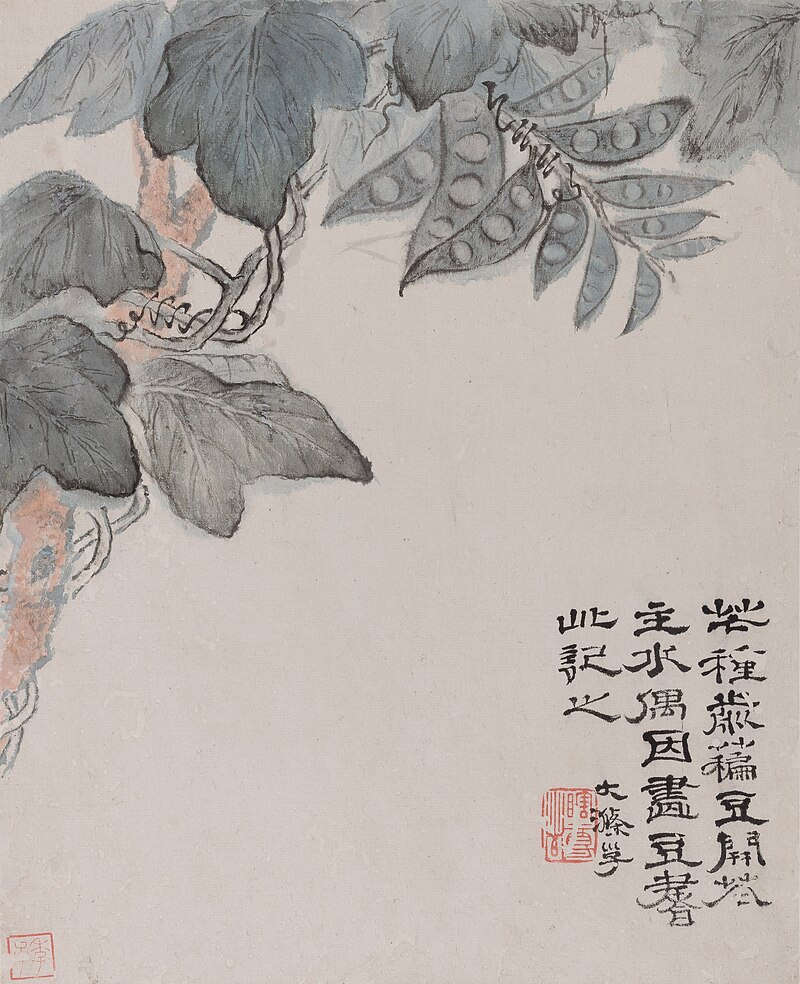 芒種萹豆開花
主水偶因畫豆書
此記之
大滌子